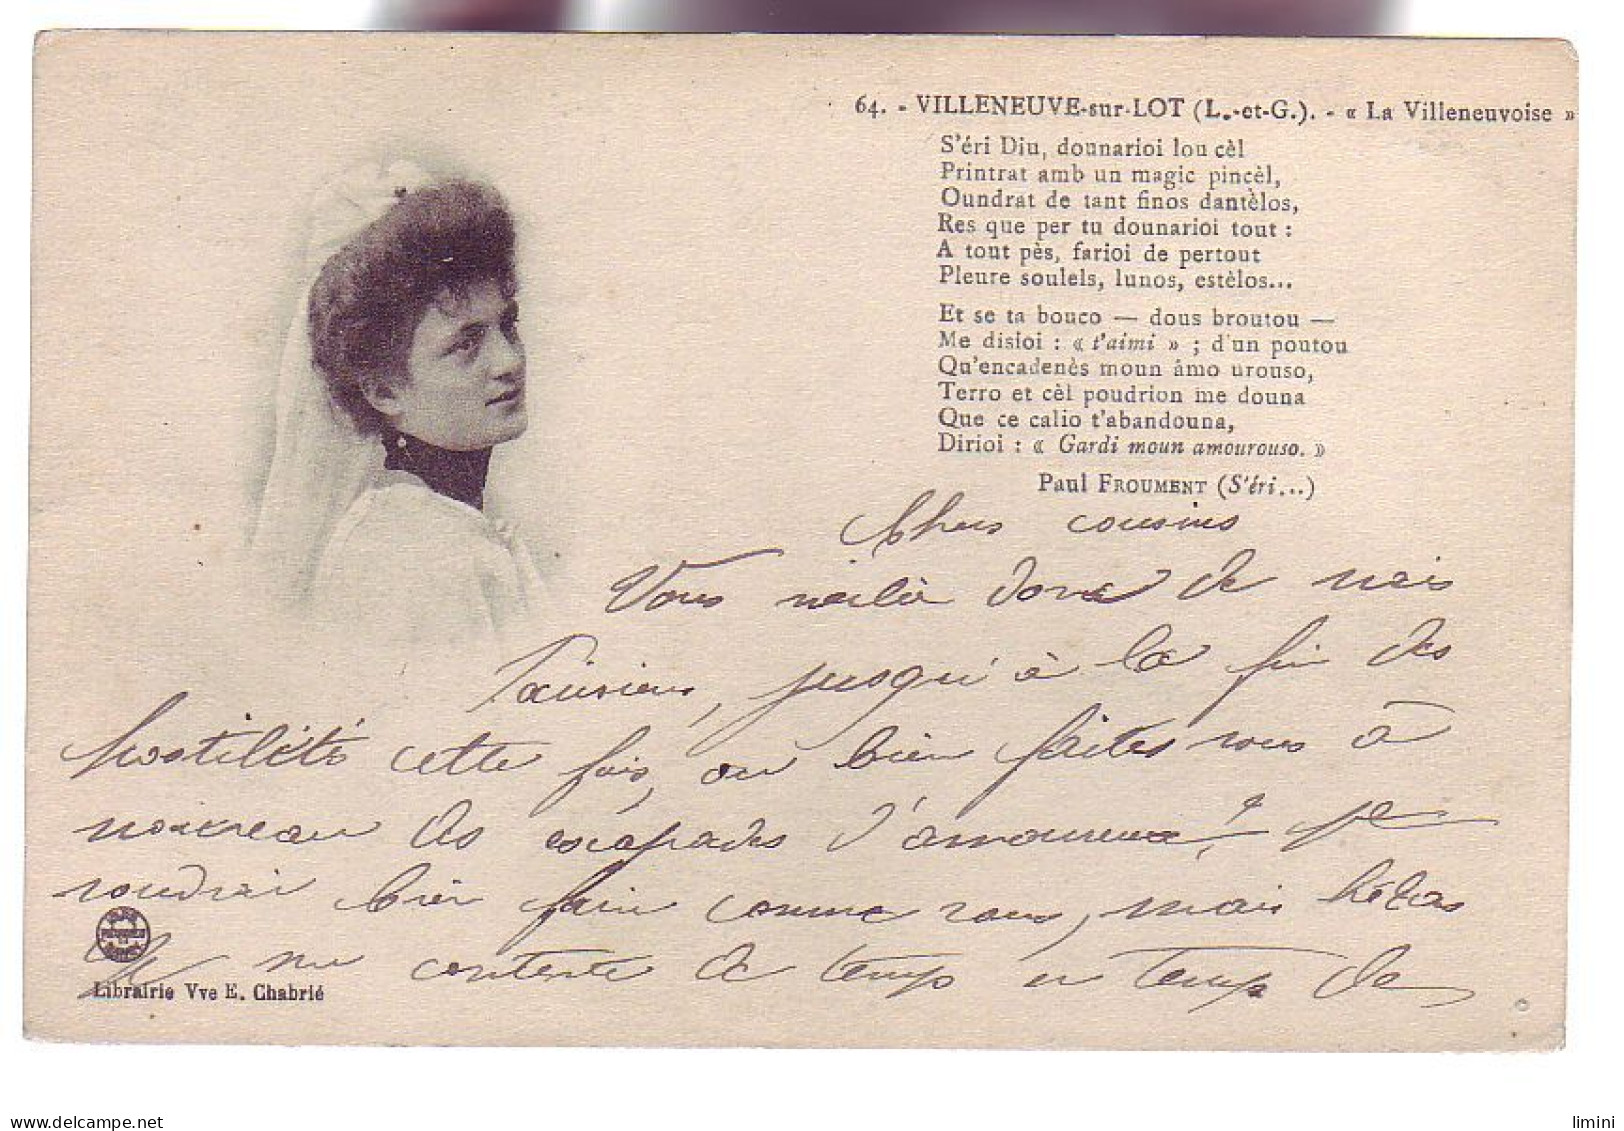 64. - VILLENEUVE-sur-LOT (L.-et-G.). - « La Villeneuvoise »
S'éri Diu, dounarioi lou cèl
Printrat amb un magic pincèl,
Oundrat de tant finos dantèlos,
Res que per tu dounarioi tout :
A tout pès, farioi de pertout
Pleure soulels, lunos, estèlos...
Et se ta bouco — dous broutou —
Me disioi : « t'aimi » ; d'un poutou
Qu'encadenès moun âmo urouso,
Terro et cèl poudrion me douna
Que ce calio t'abandouna,
Dirioi : « Gardi moun amourouso. »
Paul FROUMENT (S'éri...)
Chers cousins
Vous voilà donc de vrais
Parisiens, jusqu'à la fin des
hostilités cette fois, ou bien faites vous à
nouveau des escapades d'amoureux? Je
voudrai bien faire comme vous, mais hélas
Je me contente de temps en temps de
Librairie Vve E. Chabrié
delcampe.net
limini